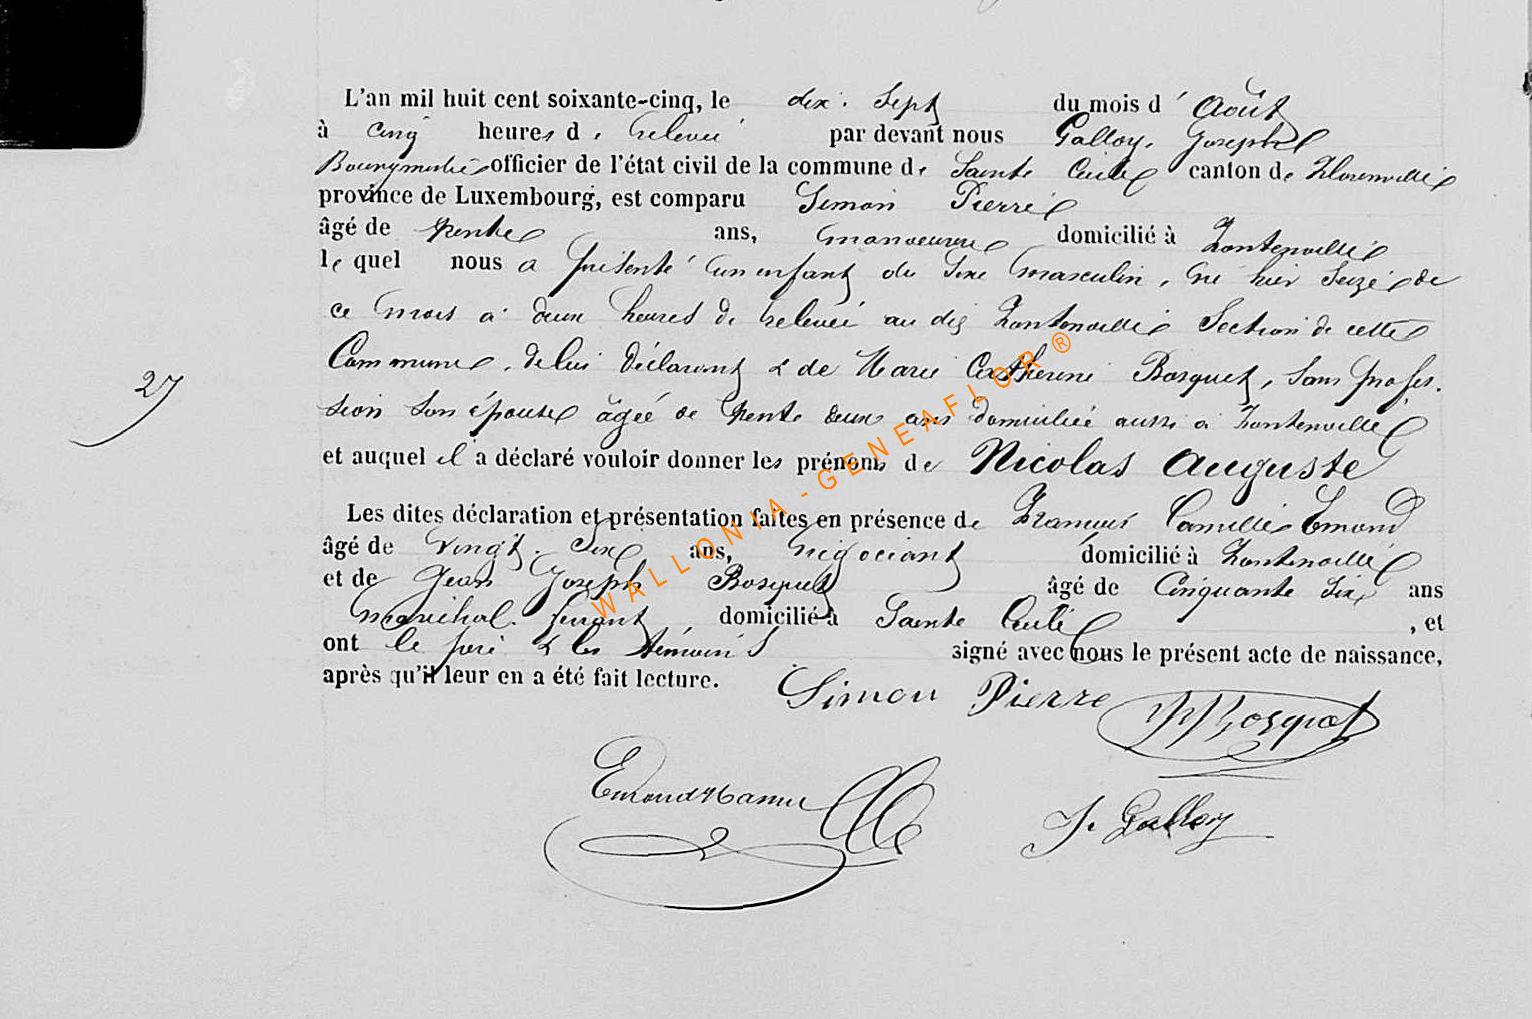 L'an mil huit cent soixante-cinq, le dix-sept du mois d'Août
à cinq heures de relevée par devant nous Galloy, Joseph
Bourgmestre officier de l'état civil de la commune de Sainte Cécile canton de Florenville
province de Luxembourg, est comparu Simon Pierre
âgé de trente ans, manoeuvre domicilié à Fontenoille
lequel nous a présenté un enfant du sexe masculin, né hier seize de
ce mois à deux heures de relevée au dit Fontenoille Section de cette
Commune, de lui déclarant & de Marie Catherine Bosquet, sans profes-
27
sion son épouse âgée de trente deux ans domiciliée aussi à Fontenoille
et auquel il a déclaré vouloir donner les prénoms de Nicolas Auguste
Les dites déclaration et présentation faites en présence de Camille Edmond
âgé de vingt-six ans, négociant domicilié à Fontenoille
et de Jean Joseph Bosquet âgé de cinquante six ans
maréchal ferrant, domicilié à Sainte Cécile, et
ont le père & les témoins signé avec nous le présent acte de naissance,
après qu'il leur en a été fait lecture.
Simon Pierre
JJBosquet
J. Galloy
WALLONIA-GENEAFLOR®